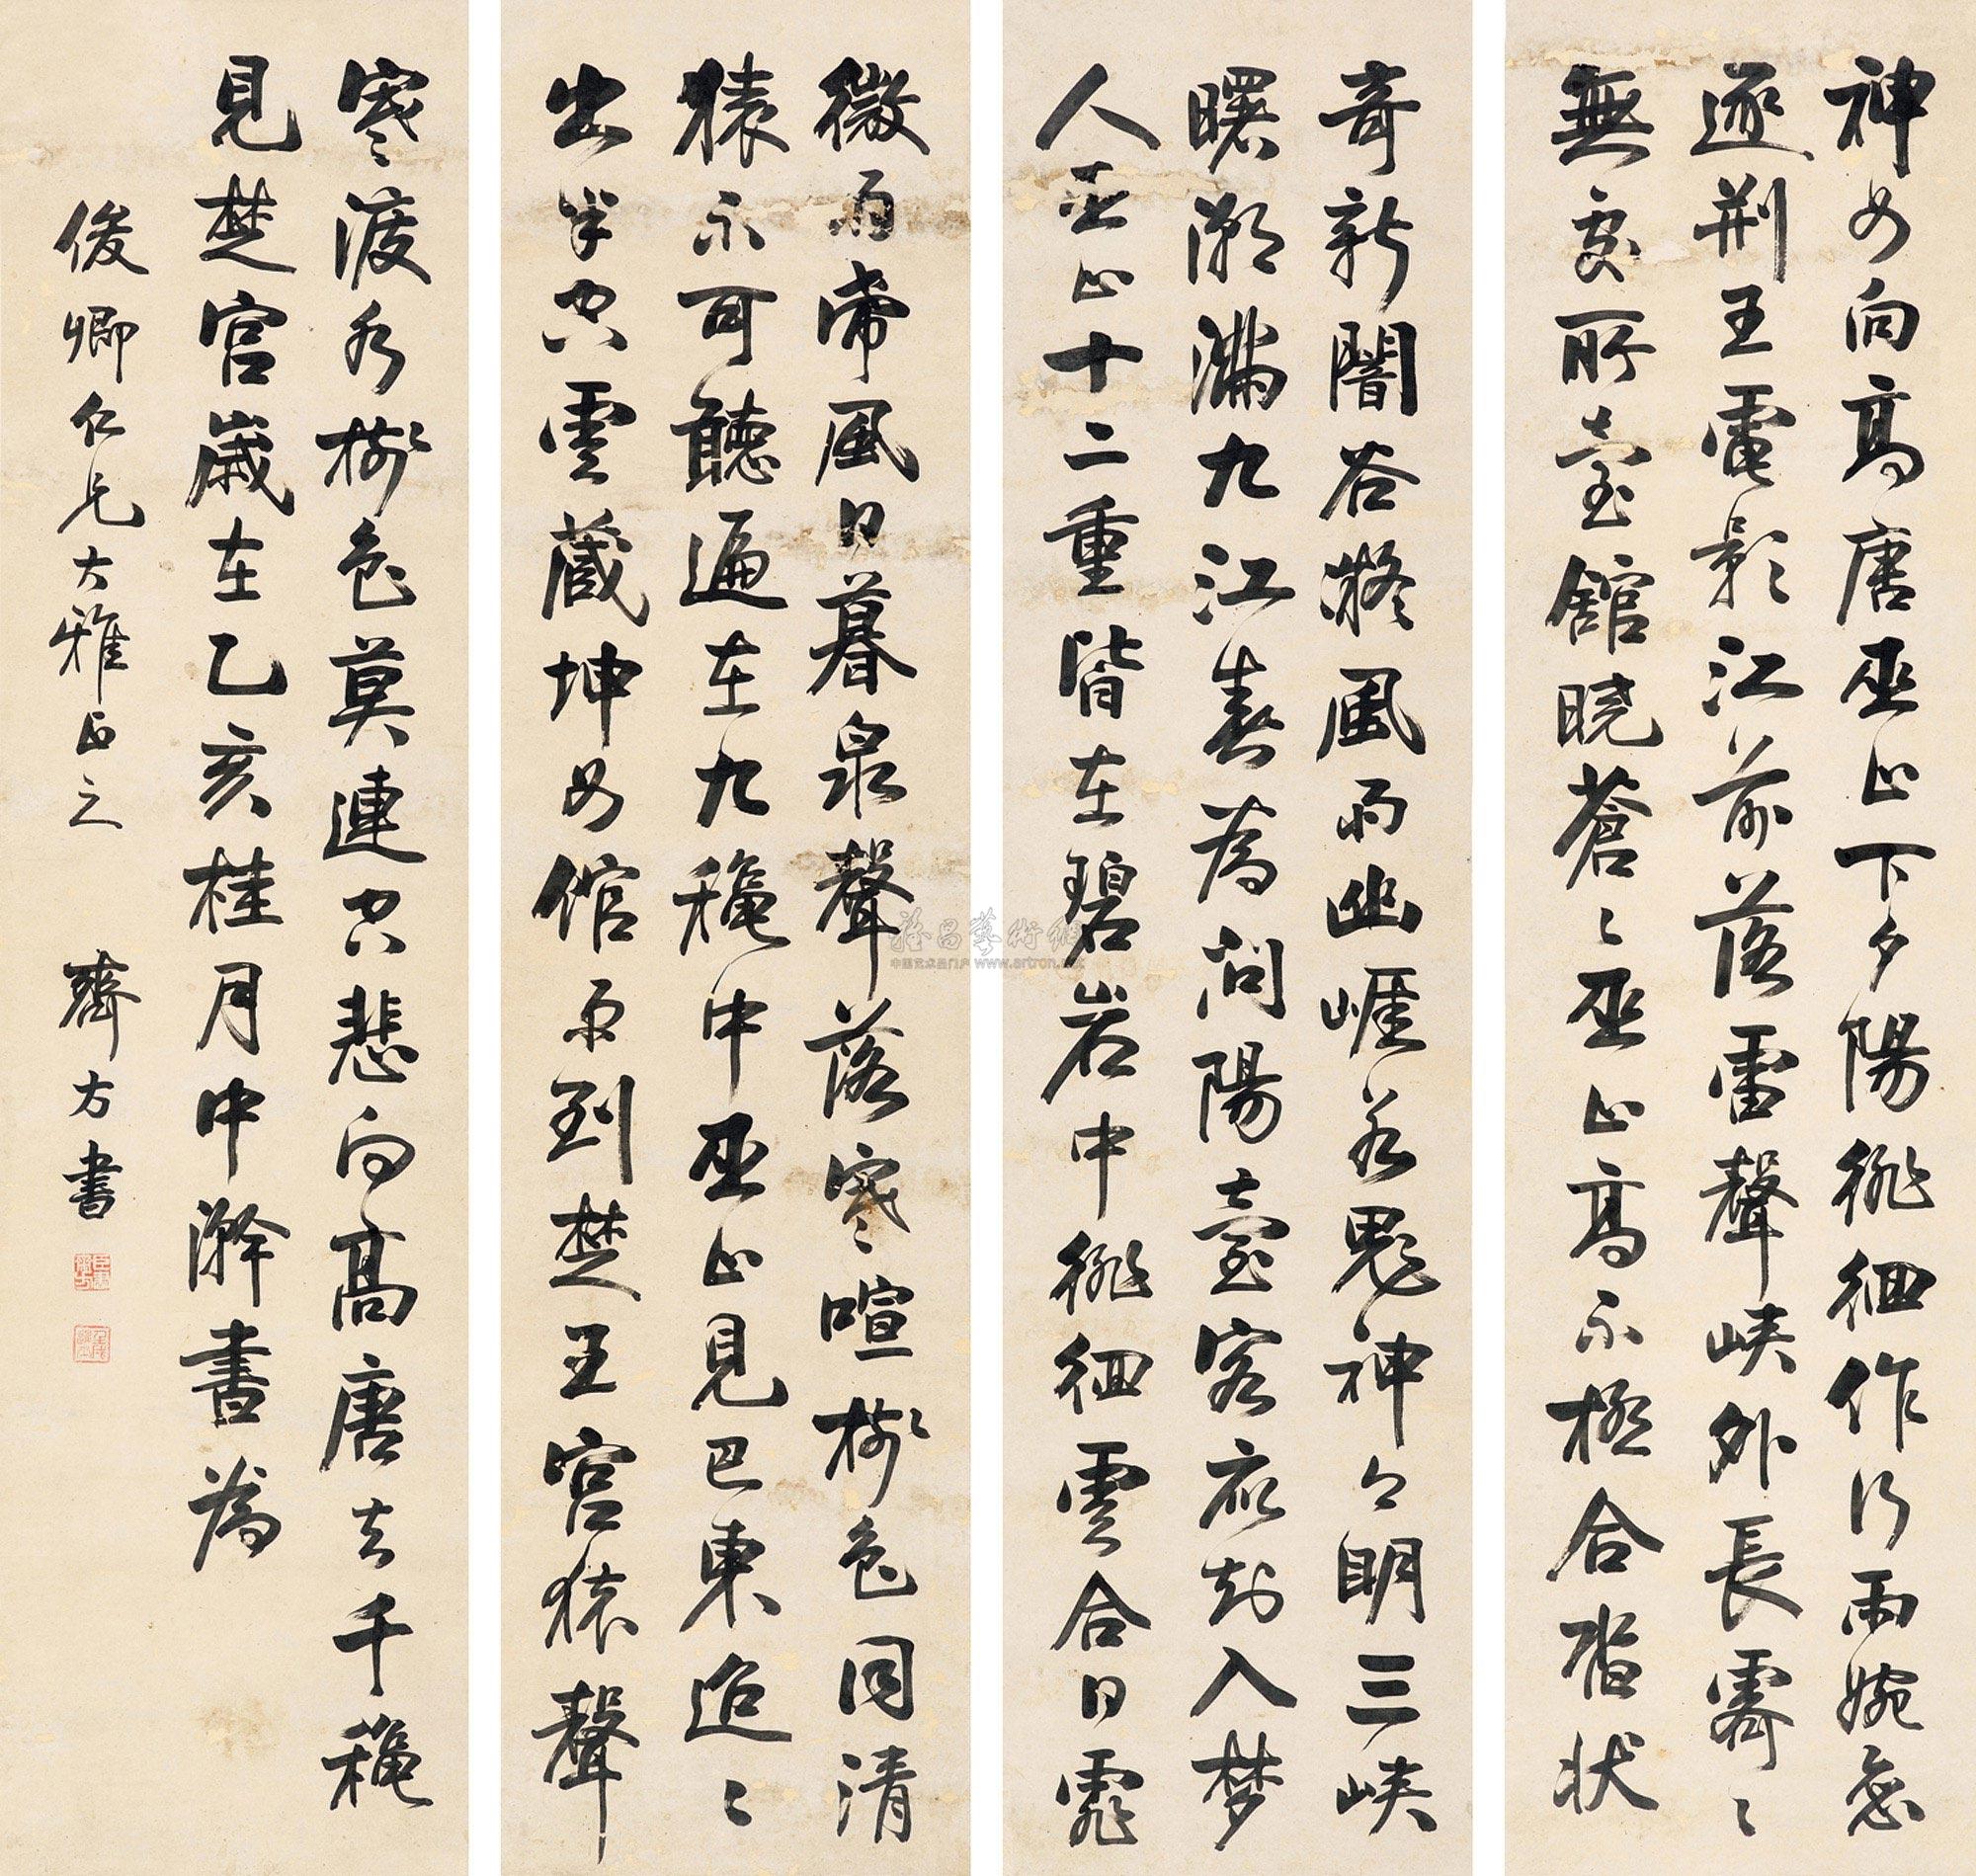 神女向高唐巫山下夕陽徘徊作行雨婉孌
逐荊王電影江前落雷聲峽外長霽〻
無處所臺館曉蒼〻巫山高不極合沓狀
奇新闇谷凝風雨幽崖若鬼神〻明三峽
曙潮滿九江春為問陽臺客應知入夢
人巫山十二重皆在碧岩中徘徊雲合日霏
微雨帶風日暮泉聲落寒喧樹色同清
猿不可聽遍在九穐中巫山見巴東迢〻
出半空雲藏神女館雨到楚王宮猿聲
寒渡水樹色莫連空悲向高唐去千穐
見楚宮歲在乙亥桂月中澣書為
俊卿仁兄大雅正之 齊方書
雅昌藝術網
www.artron.net